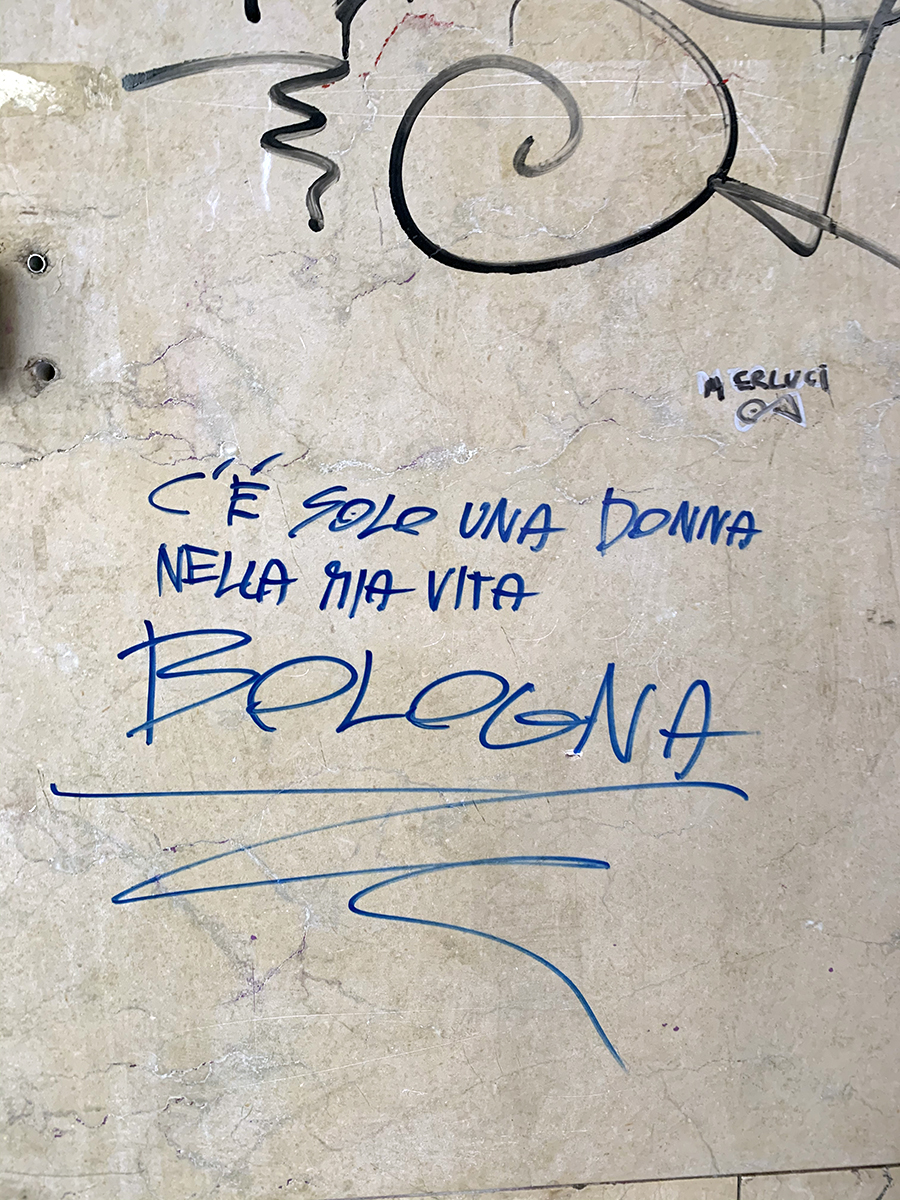 MERLUCI
C'É SOLO UNA DONNA
NELLA MIA VITA
BOLOGNA